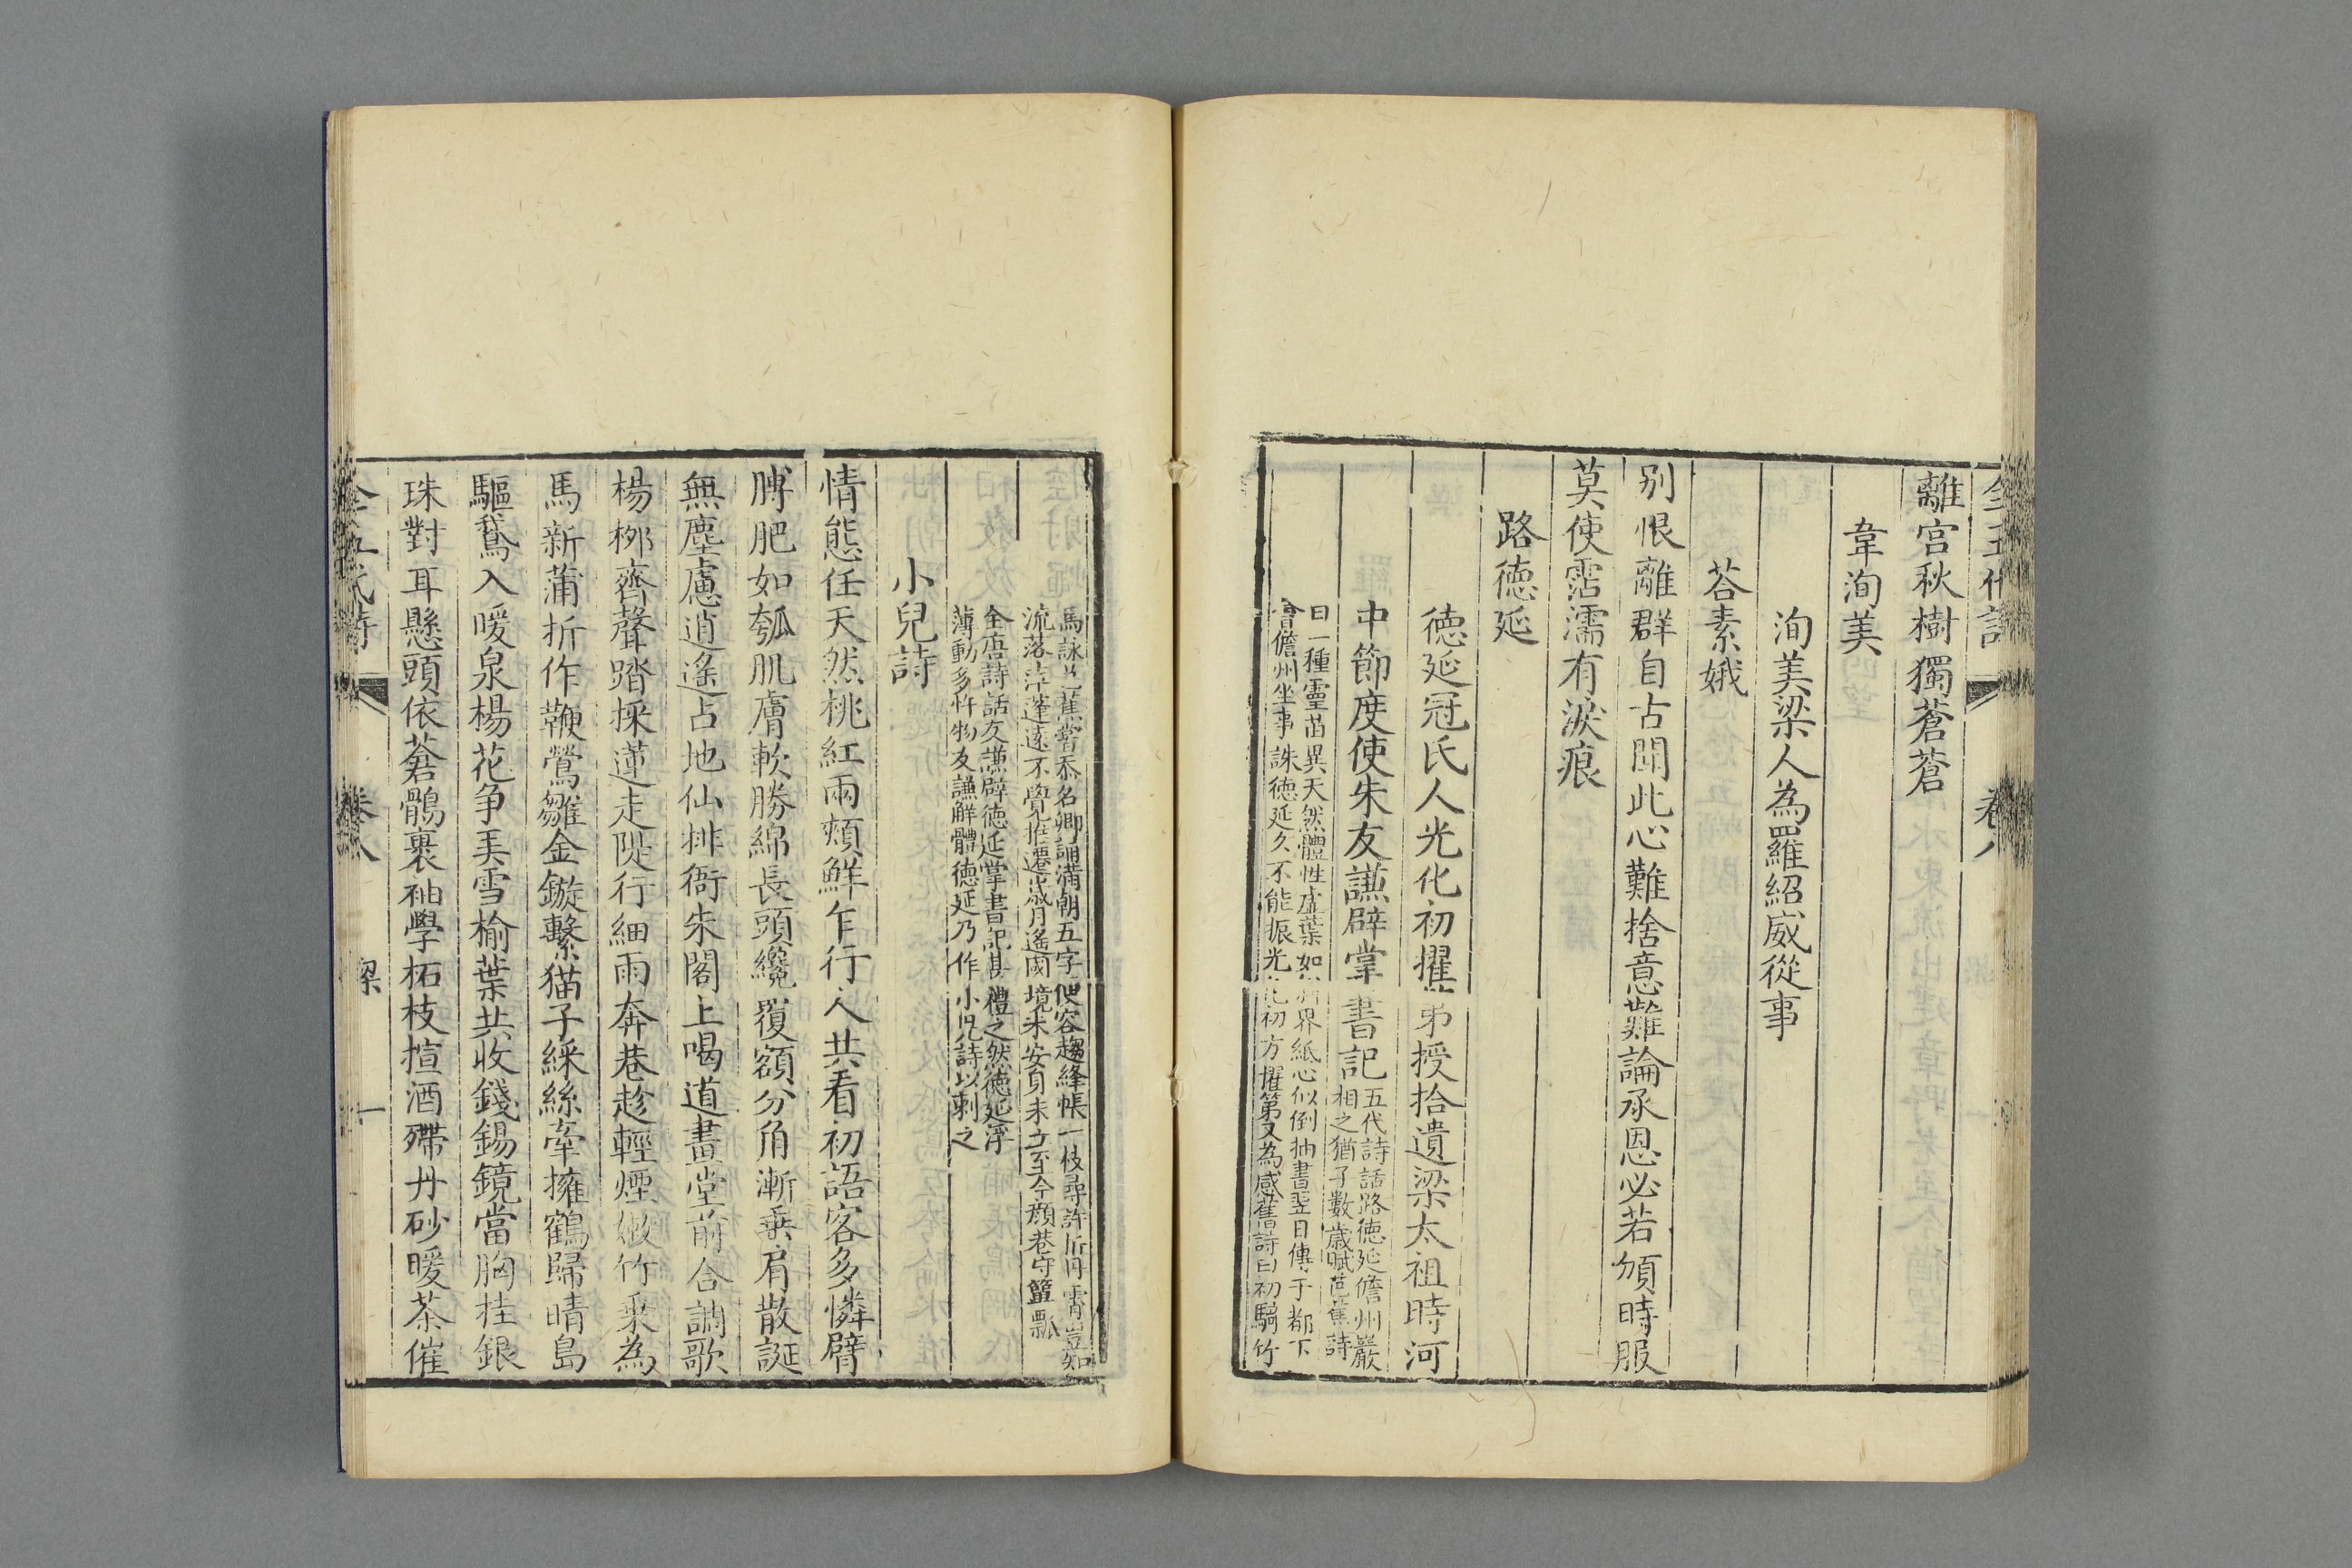 離宮秋樹獨蒼蒼
韋洵美
洵美梁人為羅紹威從事
荅素娥
別恨離群自古聞此心難捨意難論承恩必若頒時服
莫使霑濡有淚痕
路德延
德延冠氏人光化初擢第授拾遺梁太祖時河
中節度使朱友謙辟掌書記
五代詩話路德延儋州巖
相之猶子數歲賦芭蕉詩
曰一種靈苗異天然體性虛葉如斜界紙心似倒抽書翌日傳于都下
會儋州坐事誅德延久不能振光化初方擢第又為感舊詩曰初騎竹
馬詠芭蕉嘗忝名卿誦滿朝五字便容趨絳帳一枝尋許折丹霄豈知
流落萍蓬遠不覺推遷歲月遙國境未安身未立至今顏巷守簞瓢
全唐詩話友謙辟德延掌書記甚禮之然德延浮
薄動多忤物友謙解體德延乃作小兒詩以刺之
小兒詩
情態任天然桃紅兩頰鮮乍行人共看初語客多憐臂
膊肥如瓠肌膚軟勝綿長頭纔覆額分角漸垂肩散誕
無塵慮逍遙占地仙排衙朱閣上喝道畫堂前合調歌
楊桺齊聲踏採蓮走隄行細雨奔巷趁輕煙嫩竹乘為
馬新蒲折作鞭鶯雛金鏇繫猫子綵絲牽擁鶴歸晴島
驅鵞入暖泉楊花争弄雪榆葉共收錢錫鏡當胸挂銀
珠對耳懸頭依蒼鶻裹袖學柘枝揎酒殢丹砂暖茶催
卷八
梁
一